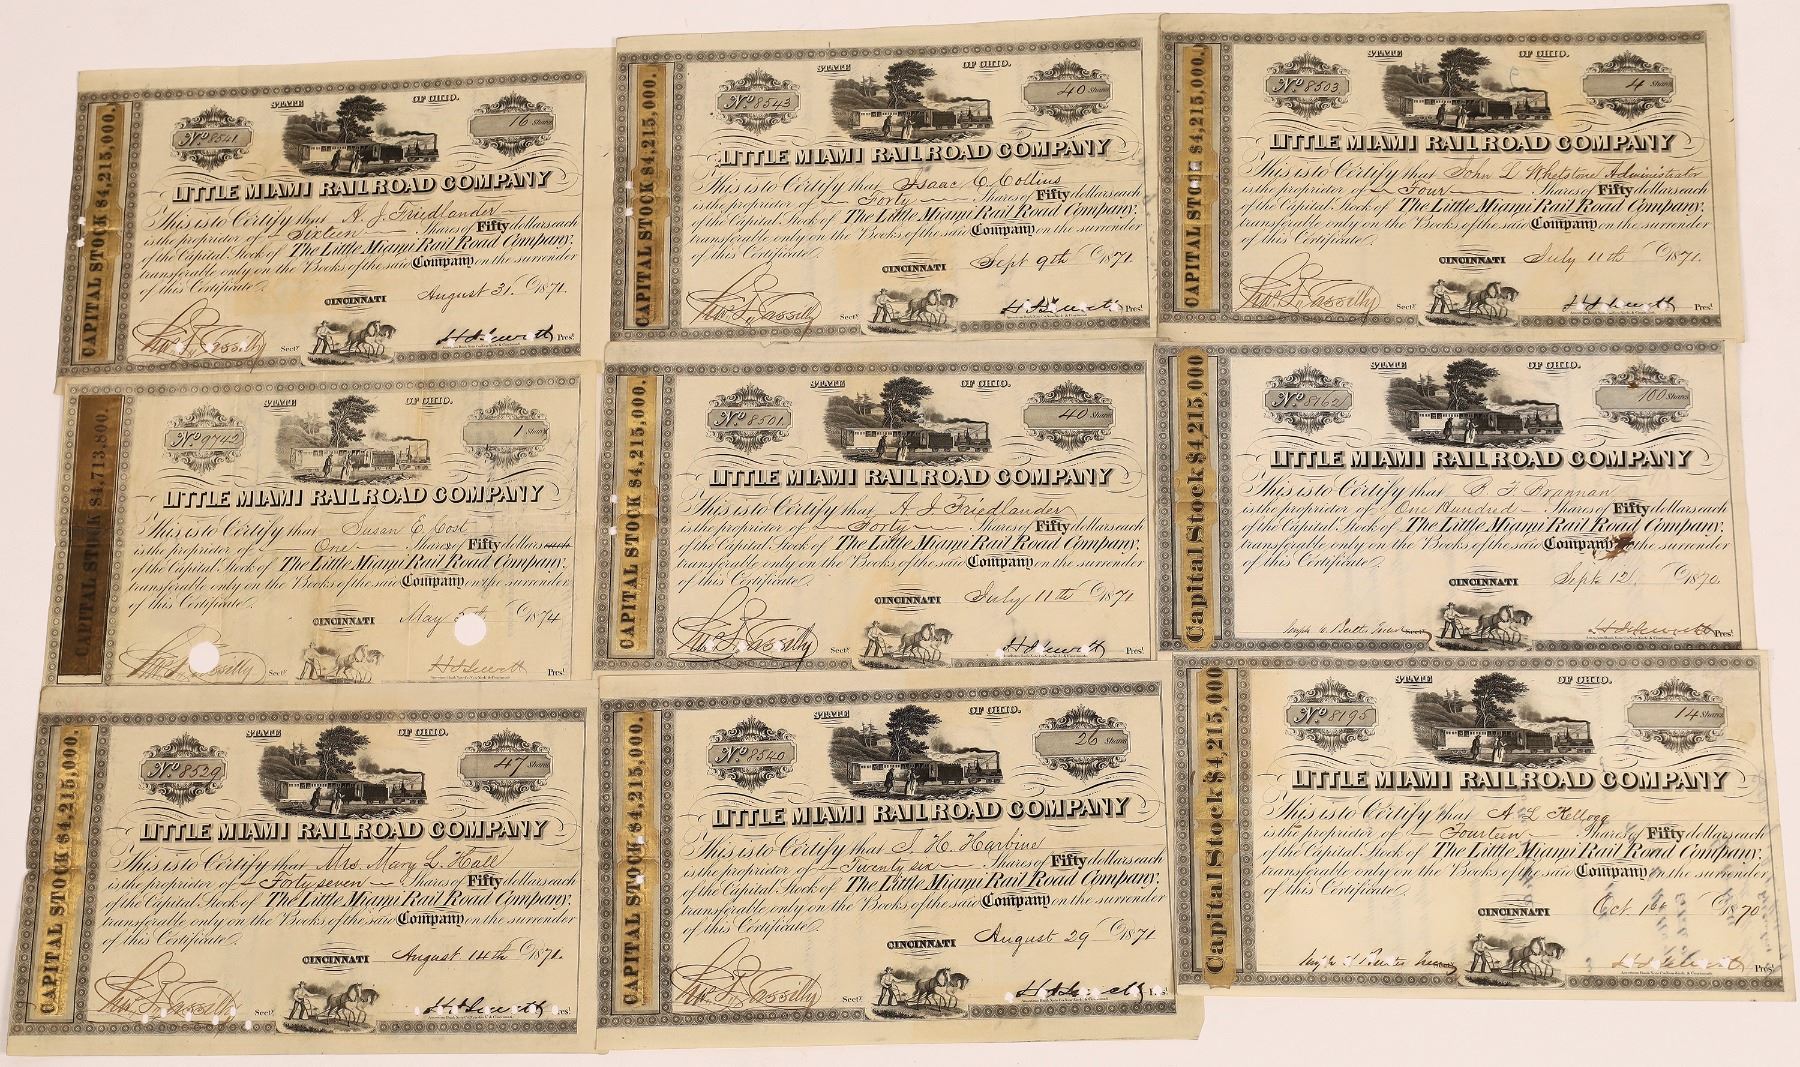 CAPITAL STOCK $4,215,000.
STATE OF OHIO.
No 8541
16 Shares
LITTLE MIAMI RAILROAD COMPANY
This is to Certify that A. J. Friedlander
is the proprietor of Sixteen Shares of Fifty dollars each
of the Capital Stock of The Little Miami Rail Road Company,
transferable only on the Books of the said Company on the surrender
of this Certificate.
CINCINNATI August 31. 1871.
Secty
Prest
CAPITAL STOCK $4,215,000.
STATE OF OHIO.
No 8543
40 Shares
LITTLE MIAMI RAILROAD COMPANY
This is to Certify that Isaac C. Collins
is the proprietor of Forty Shares of Fifty dollars each
of the Capital Stock of The Little Miami Rail Road Company,
transferable only on the Books of the said Company on the surrender
of this Certificate.
CINCINNATI Sept 9th 1871.
Secty
Prest
CAPITAL STOCK $4,215,000.
STATE OF OHIO.
No 8503
4 Shares
LITTLE MIAMI RAILROAD COMPANY
This is to Certify that John L Whetstone Administrator
is the proprietor of Four Shares of Fifty dollars each
of the Capital Stock of The Little Miami Rail Road Company,
transferable only on the Books of the said Company on the surrender
of this Certificate.
CINCINNATI July 11th 1871.
Secty
Prest
CAPITAL STOCK $4,713,800.
STATE OF OHIO.
No 9742
1 Shares
LITTLE MIAMI RAILROAD COMPANY
This is to Certify that Susan E Cost
is the proprietor of One Shares of Fifty dollars each
of the Capital Stock of The Little Miami Rail Road Company,
transferable only on the Books of the said Company on the surrender
of this Certificate.
CINCINNATI May 5th 1874
Secty
Prest
CAPITAL STOCK $4,215,000.
STATE OF OHIO.
No 8501
40 Shares
LITTLE MIAMI RAILROAD COMPANY
This is to Certify that A J Friedlander
is the proprietor of Forty Shares of Fifty dollars each
of the Capital Stock of The Little Miami Rail Road Company,
transferable only on the Books of the said Company on the surrender
of this Certificate.
CINCINNATI July 11th 1871
Secty
Prest
Capital Stock $4,215,000
STATE OF OHIO.
No 8162
100 Shares
LITTLE MIAMI RAILROAD COMPANY
This is to Certify that B F Brannan
is the proprietor of One Hundred Shares of Fifty dollars each
of the Capital Stock of The Little Miami Rail Road Company,
transferable only on the Books of the said Company on the surrender
of this Certificate.
CINCINNATI Sept 12 1870.
Prest
CAPITAL STOCK $4,215,000.
STATE OF OHIO.
No 8529
47 Shares
LITTLE MIAMI RAILROAD COMPANY
This is to Certify that Mrs. Mary L. Hall
is the proprietor of Forty seven Shares of Fifty dollars each
of the Capital Stock of The Little Miami Rail Road Company,
transferable only on the Books of the said Company on the surrender
of this Certificate.
CINCINNATI August 14th 1871.
Secty
Prest
CAPITAL STOCK $4,215,000.
STATE OF OHIO.
No 8540
26 Shares
LITTLE MIAMI RAILROAD COMPANY
This is to Certify that J. H. Harbine
is the proprietor of Twenty six Shares of Fifty dollars each
of the Capital Stock of The Little Miami Rail Road Company,
transferable only on the Books of the said Company on the surrender
of this Certificate.
CINCINNATI August 29 1871
Secty
Capital Stock $4,215,000
STATE OF OHIO.
No 8195
14 Shares
LITTLE MIAMI RAILROAD COMPANY
This is to Certify that A L Kellogg
is the proprietor of Fourteen Shares of Fifty dollars each
of the Capital Stock of The Little Miami Rail Road Company,
transferable only on the Books of the said Company on the surrender
of this Certificate.
CINCINNATI Oct. 1st 1870
Prest